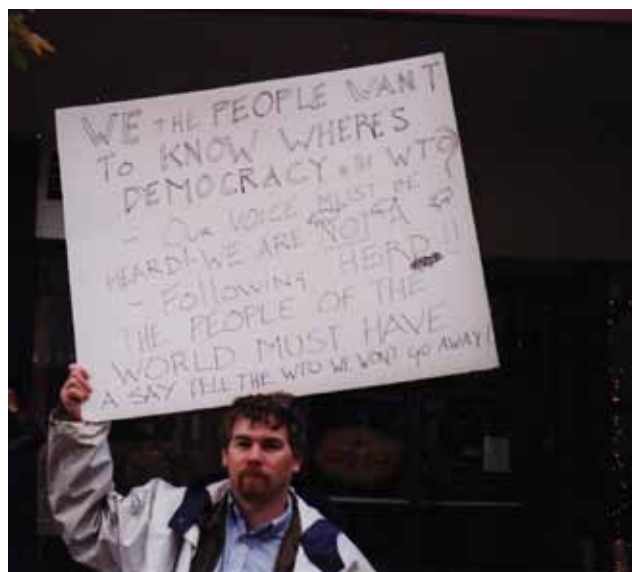 WE THE PEOPLE WANT
TO KNOW WHERES
DEMOCRACY WTO?
- OUR VOICE MUST BE
HEARD! - WE ARE NOT A
- FOLLOWING HERD!!
THE PEOPLE OF THE
WORLD MUST HAVE
A SAY TELL THE WTO WE WON'T GO AWAY!